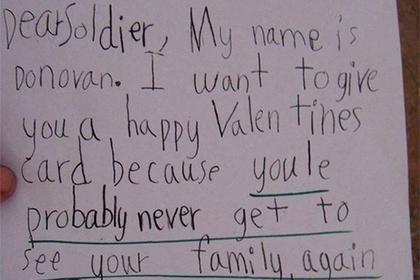 DearSoldier, My name is
Donovan. I want to give
you a happy Valentines
card because youle
probably never get to
see your family again